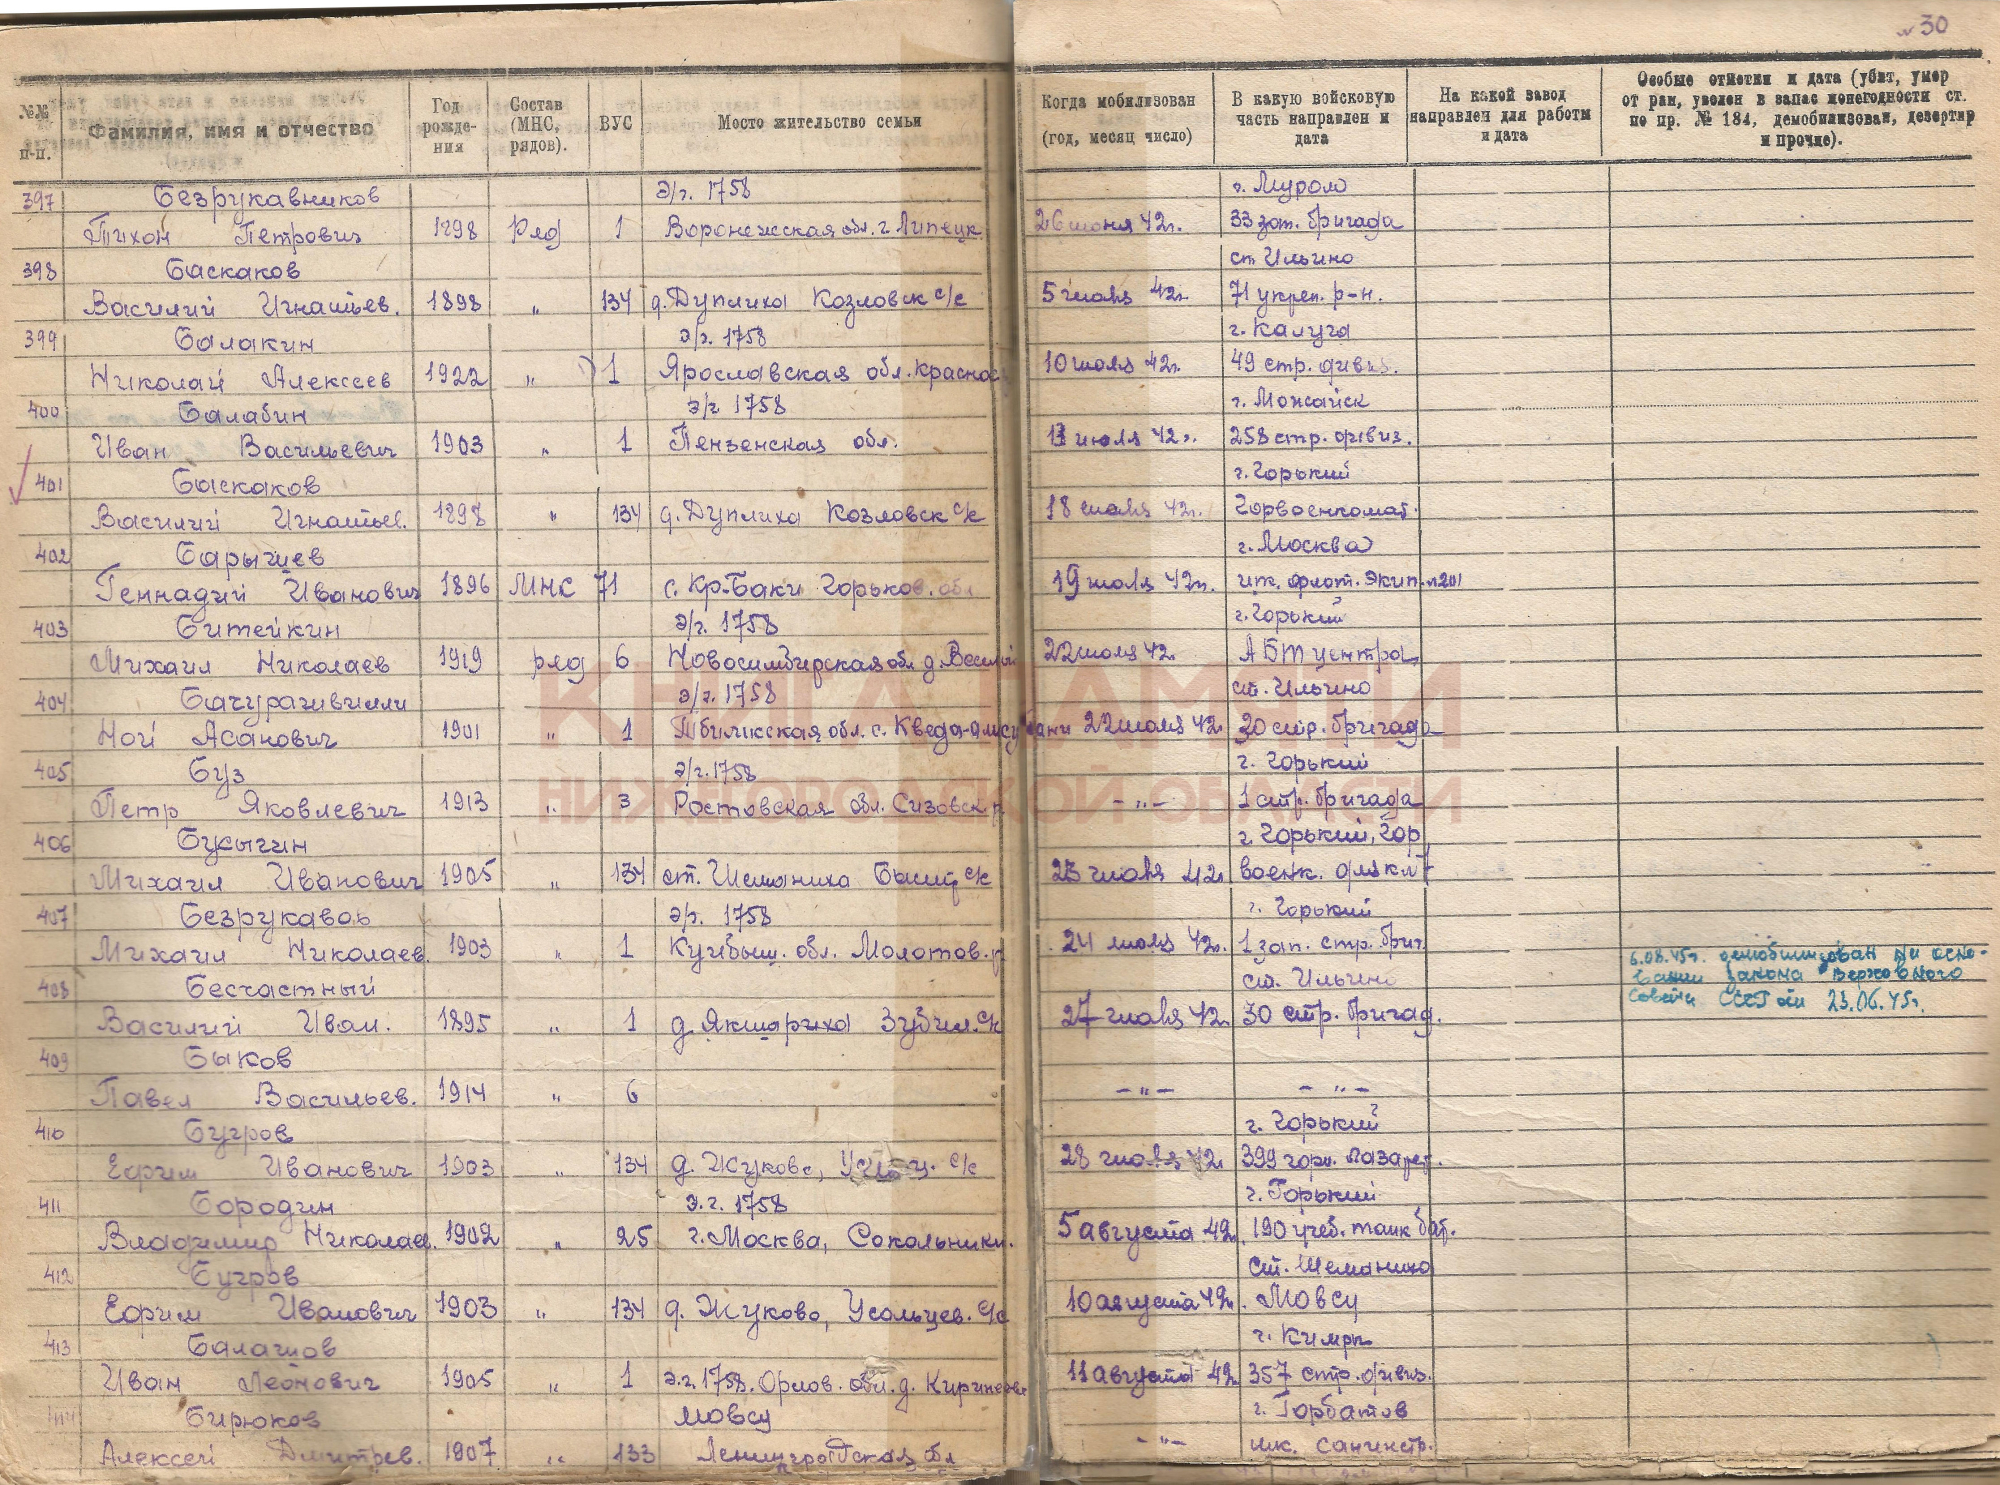 № 30
№№ п-п. Фамилия, имя и отчество Год рожде-ния Состав (МНС, рядов). ВУС Место жительство семьи Когда мобилизован (год, месяц число) В какую войсковую часть направлен и дата На какой завод направлен для работы и дата Особые отметки и дата (убит, умер от ран, уволен в запас понегодности ст. по пр. № 184, демобилизован, дезертир и прочие).
397 Безрукавников э/г. 1758 г. Муром
Тихон Петрович 1898 Ряд 1 Воронежская обл. г. Липецк 26 июня 42г. 33 зап. бригада
398 Баскаков ст. Ильино
Василий Игнатьев. 1898 " 134 д. Дуплиха Козловск с/с 5 июля 42г. 71 укреп. р-н.
399 Балакин э/г. 1758 г. Калуга
Николай Алексеев 1922 " 1 Ярославская обл. Краснос 10 июля 42г. 49 стр. дивиз.
400 Балабин э/г 1758 г. Можайск
Иван Васильевич 1903 " 1 Пензенская обл. 13 июля 42г. 258 стр. дивиз.
401 Баскаков г. Горький
Василий Игнатьев. 1898 " 134 д. Дуплиха Козловск с/с 18 июля 42г. Горвоенкомат.
402 Барышев г. Москва
Геннадий Иванович 1896 МНС 71 с. Кр-Баки Горьков. обл 19 июля 42г. флот. Экип.
403 Битейкин э/г. 1758 г. Горький
Михаил Николаев 1919 ряд 6 Новосимбирская обл. д. Веселый 22 июля 42г. АБТ центра
404 Бачурашвилли э/г. 1758 ст. Ильино
Ной Асанович 1901 " 1 Тбилисская обл. с. 22 июля 42г. 30 стр. бригада
405 Буз э/г. 1758 г. Горький
Петр Яковлевич 1913 " 3 Ростовская обл. Сизовск р - " - 1 стр. бригада
406 Бусыгин г. Горький, Гор
Михаил Иванович 1905 " 134 ст. Шеманиха с/с 23 июля 42г. военк.
407 Безрукавов э/г. 1758 г. Горький
Михаил Николаев. 1903 " 1 Куйбыш. обл. Молотов. р 24 июля 42г. 1 зап. стр. бриг
408 Бесчастный ст. Ильино 6.08.45г. демобилизован на осно-
вании закона Верховного
Василий Иван. 1895 " 1 д. Якшариха Зубил. с/с 27 июля 42г. 30 стр. бригад. Совета СССР от 23.06.45г.
409 Быков
Павел Васильев. 1914 " 6 - " - - " -
410 Бугров г. Горький
Ефрим Иванович 1903 " 134 д. Жуково, с/с 28 июля 42г 399 лазарет.
411 Бородин э.г. 1758 г. Горький
Владимир Николаев. 1902 " 25 г. Москва, Сокольники. 5 августа 42г. 190 учеб. танк бат.
412 Бугров ст. Шеманиха
Ефрим Иванович 1903 " 134 д. Жуково, Усольцев. с/с 10 августа 42г. Мовсу
413 Балашов г. Кимры
Иван Леонович 1905 " 1 э.г. 1758. Орлов. обл. д. 11 августа 42г. 357 стр. дивиз.
414 Бирюков Мовсу г. Горбатов
Алексей Дмитрев. 1907 " 133 Ленинградская обл - " -
КНИГА ПАМЯТИ
НИЖЕГОРОДСКОЙ ОБЛАСТИ